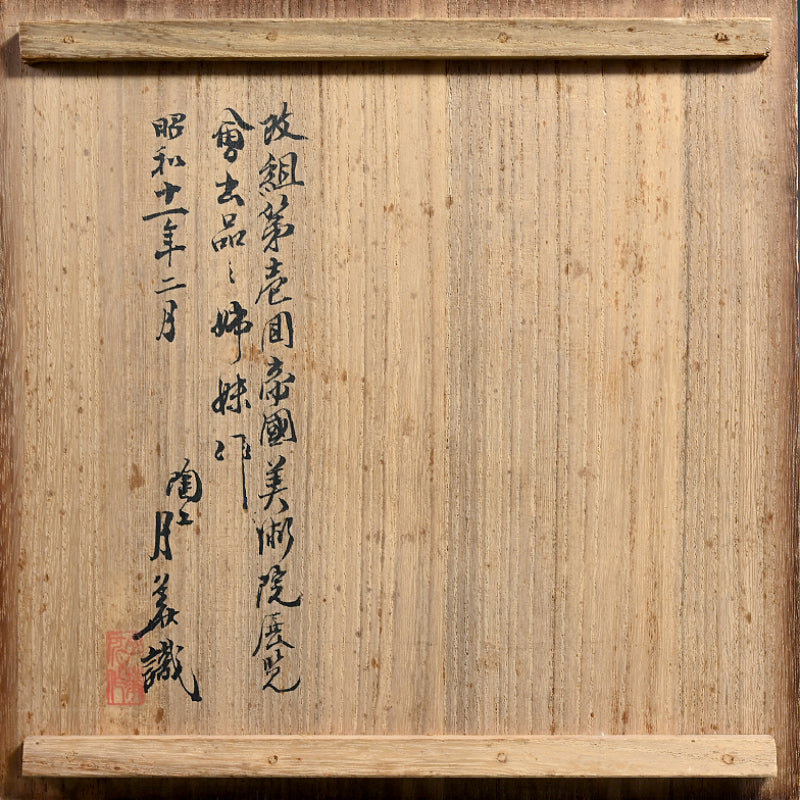 改組第壱回帝國美術院展覧
會出品之姉妹作
昭和十一年二月
陶工月義識